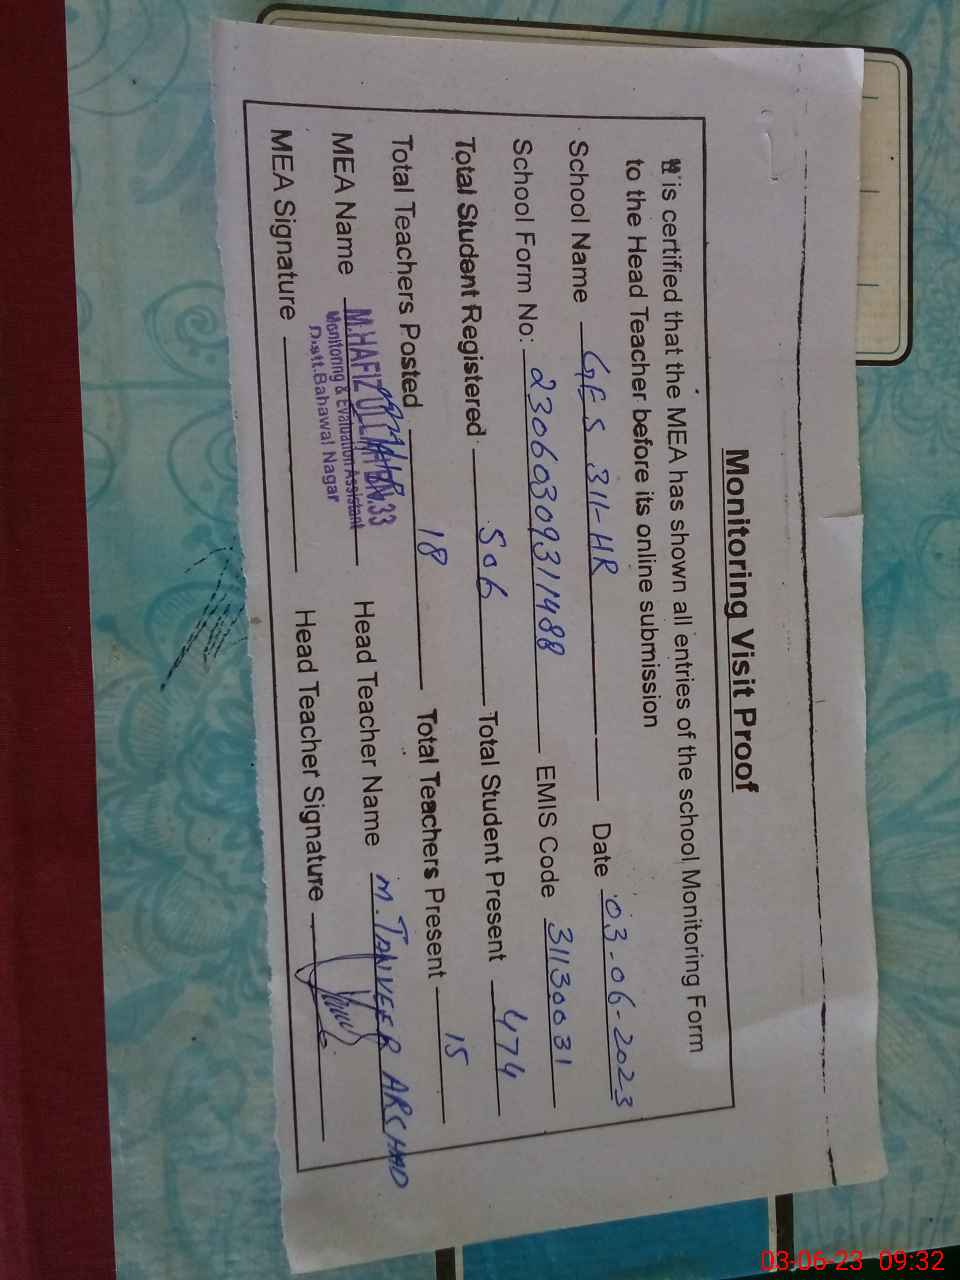 Monitoring Visit Proof
It is certified that the MEA has shown all entries of the school Monitoring Form
to the Head Teacher before its online submission
School Name GES 311-HR Date 03-06-2023
School Form No: 23060309311488 EMIS Code 31130031
Total Student Registered 506 Total Student Present 474
Total Teachers Posted 18 Total Teachers Present 15
MEA Name M.HAFIZ BN.33 Head Teacher Name M. TANVEER ARSHAD
Monitoring & Evaluation Assistant
Distt.Bahawal Nagar
MEA Signature Head Teacher Signature
03-06-23 09:32